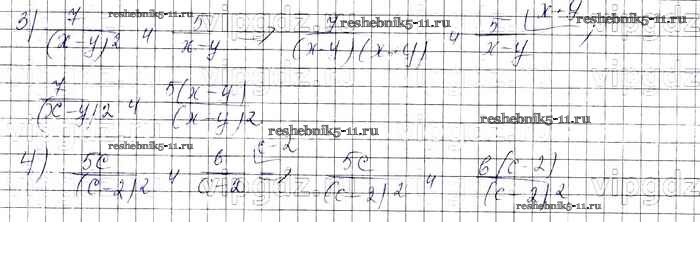 3) 7/(x-y)² и 5/x-y ; 7/(x-y)(x-y) и 5/x-y (x-y ;
7/(x-y)² и 5(x-y)/(x-y)²
4) 5c/(c-2)² и в/c-2 (c-2 ; 5c/(c-2)² и в(c-2)/(c-2)²
reshebnik5-11.ru
reshebnik5-11.ru
reshebnik5-11.ru
reshebnik5-11.ru
reshebnik5-11.ru
reshebnik5-11.ru
reshebnik5-11.ru
vipgdz
vipgdz